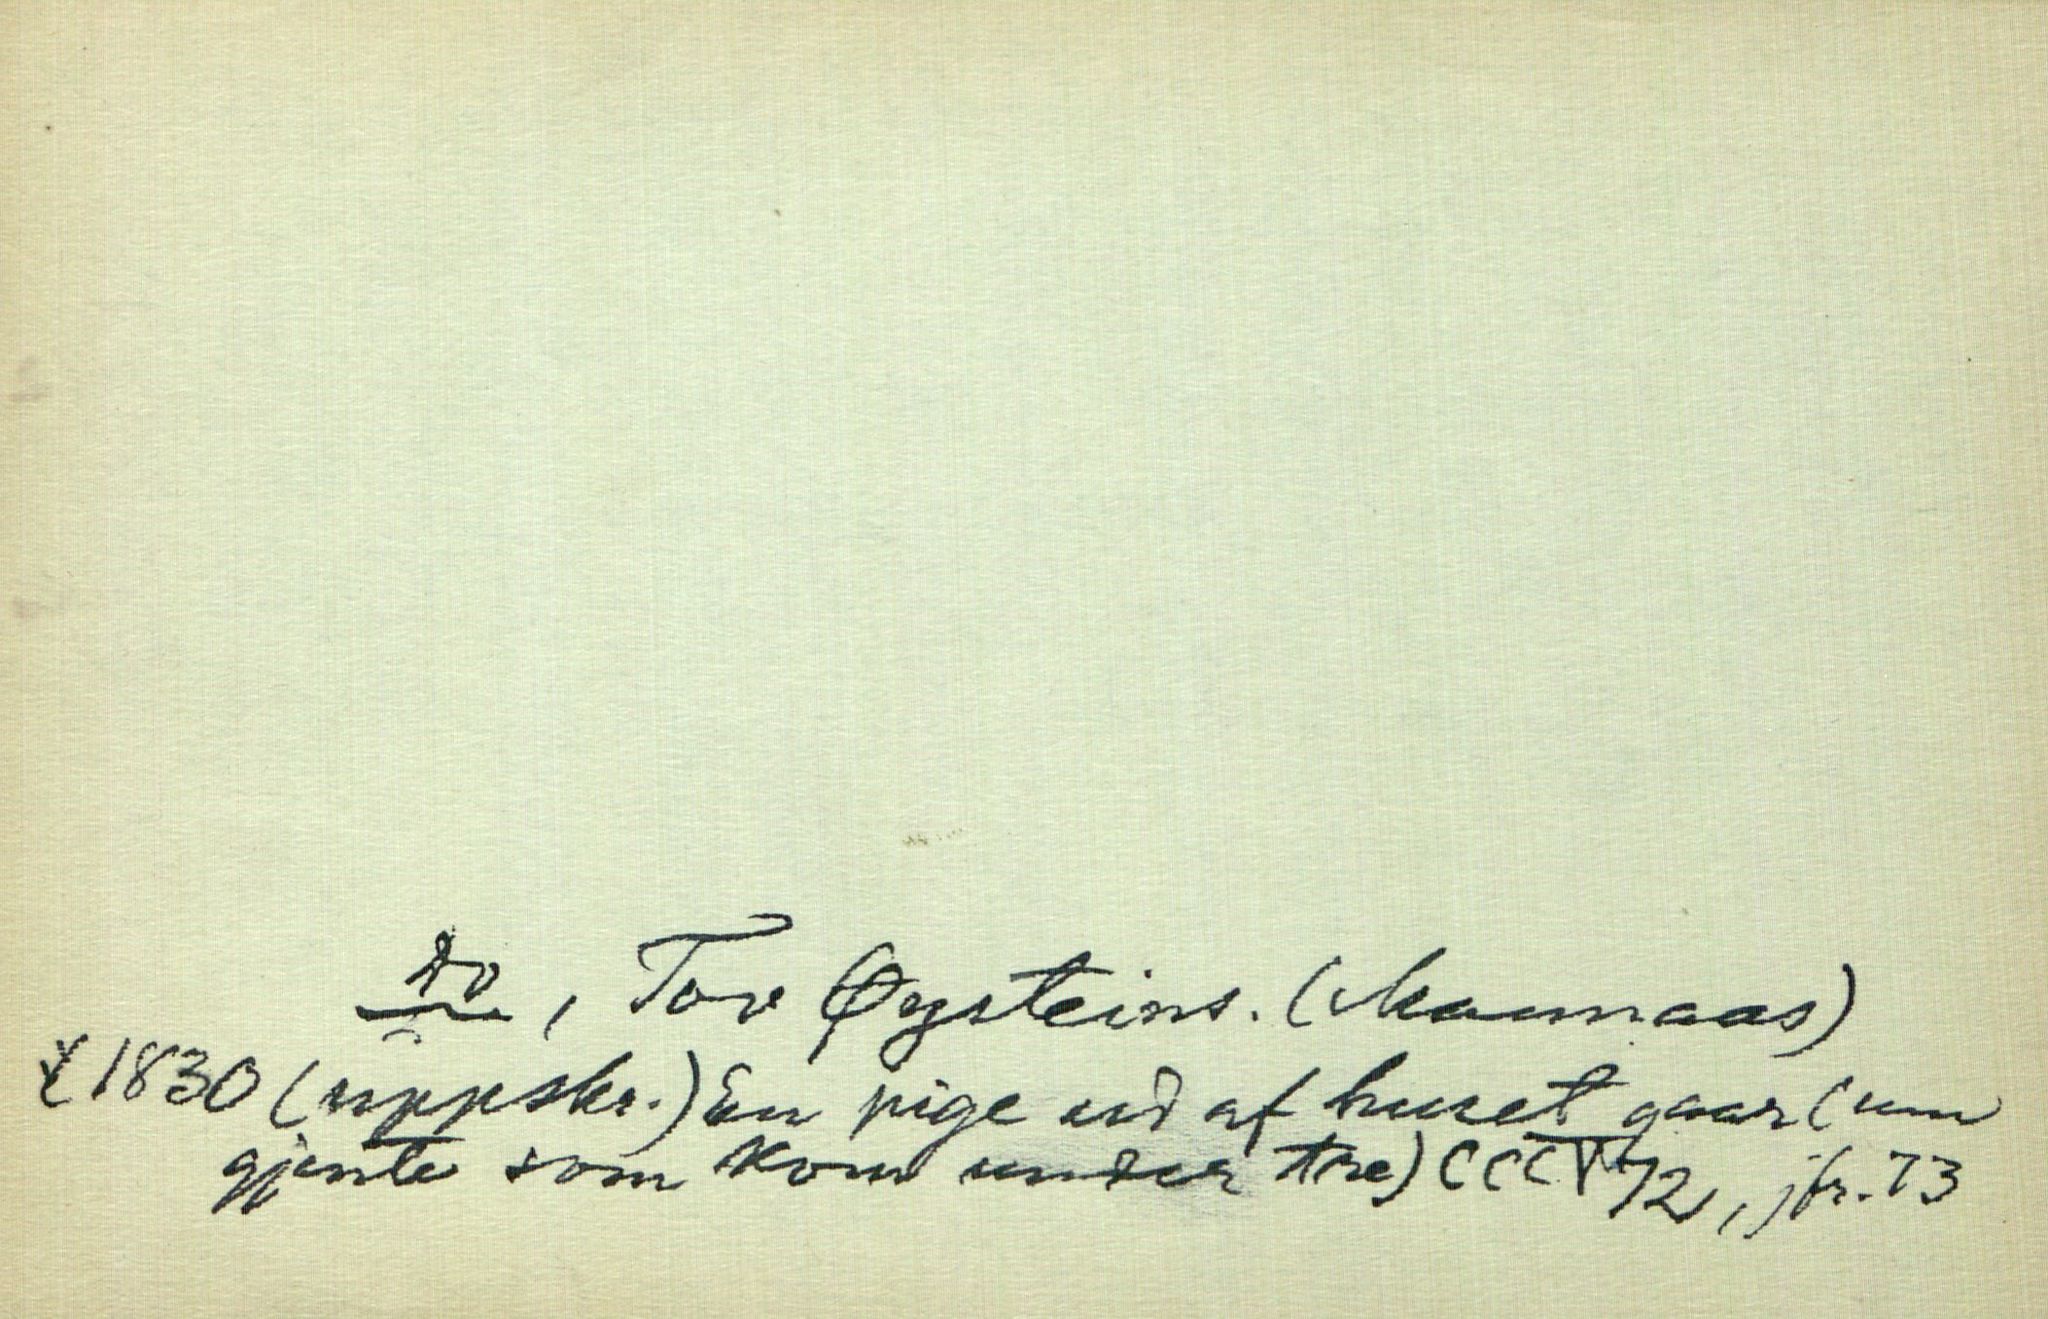 do, Tov Øysteins. (Maurnaas)
1830 (uppskr.) En pige ud af huset gaar (um
gjente som kom under tre) CCCI 72, jfr. 73